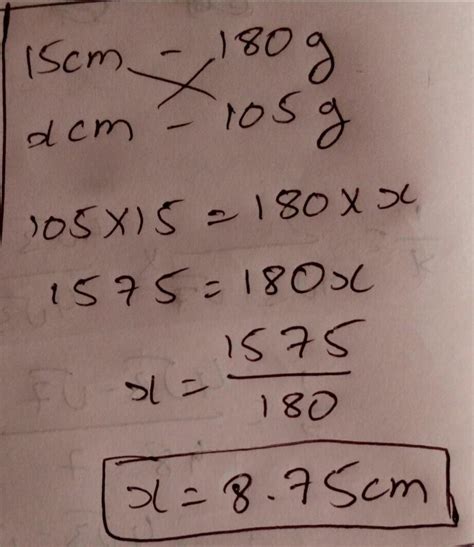 15cm - 180g
xcm - 105g
105×15 = 180×x
1575 = 180x
x = 1575/180
x = 8.75cm